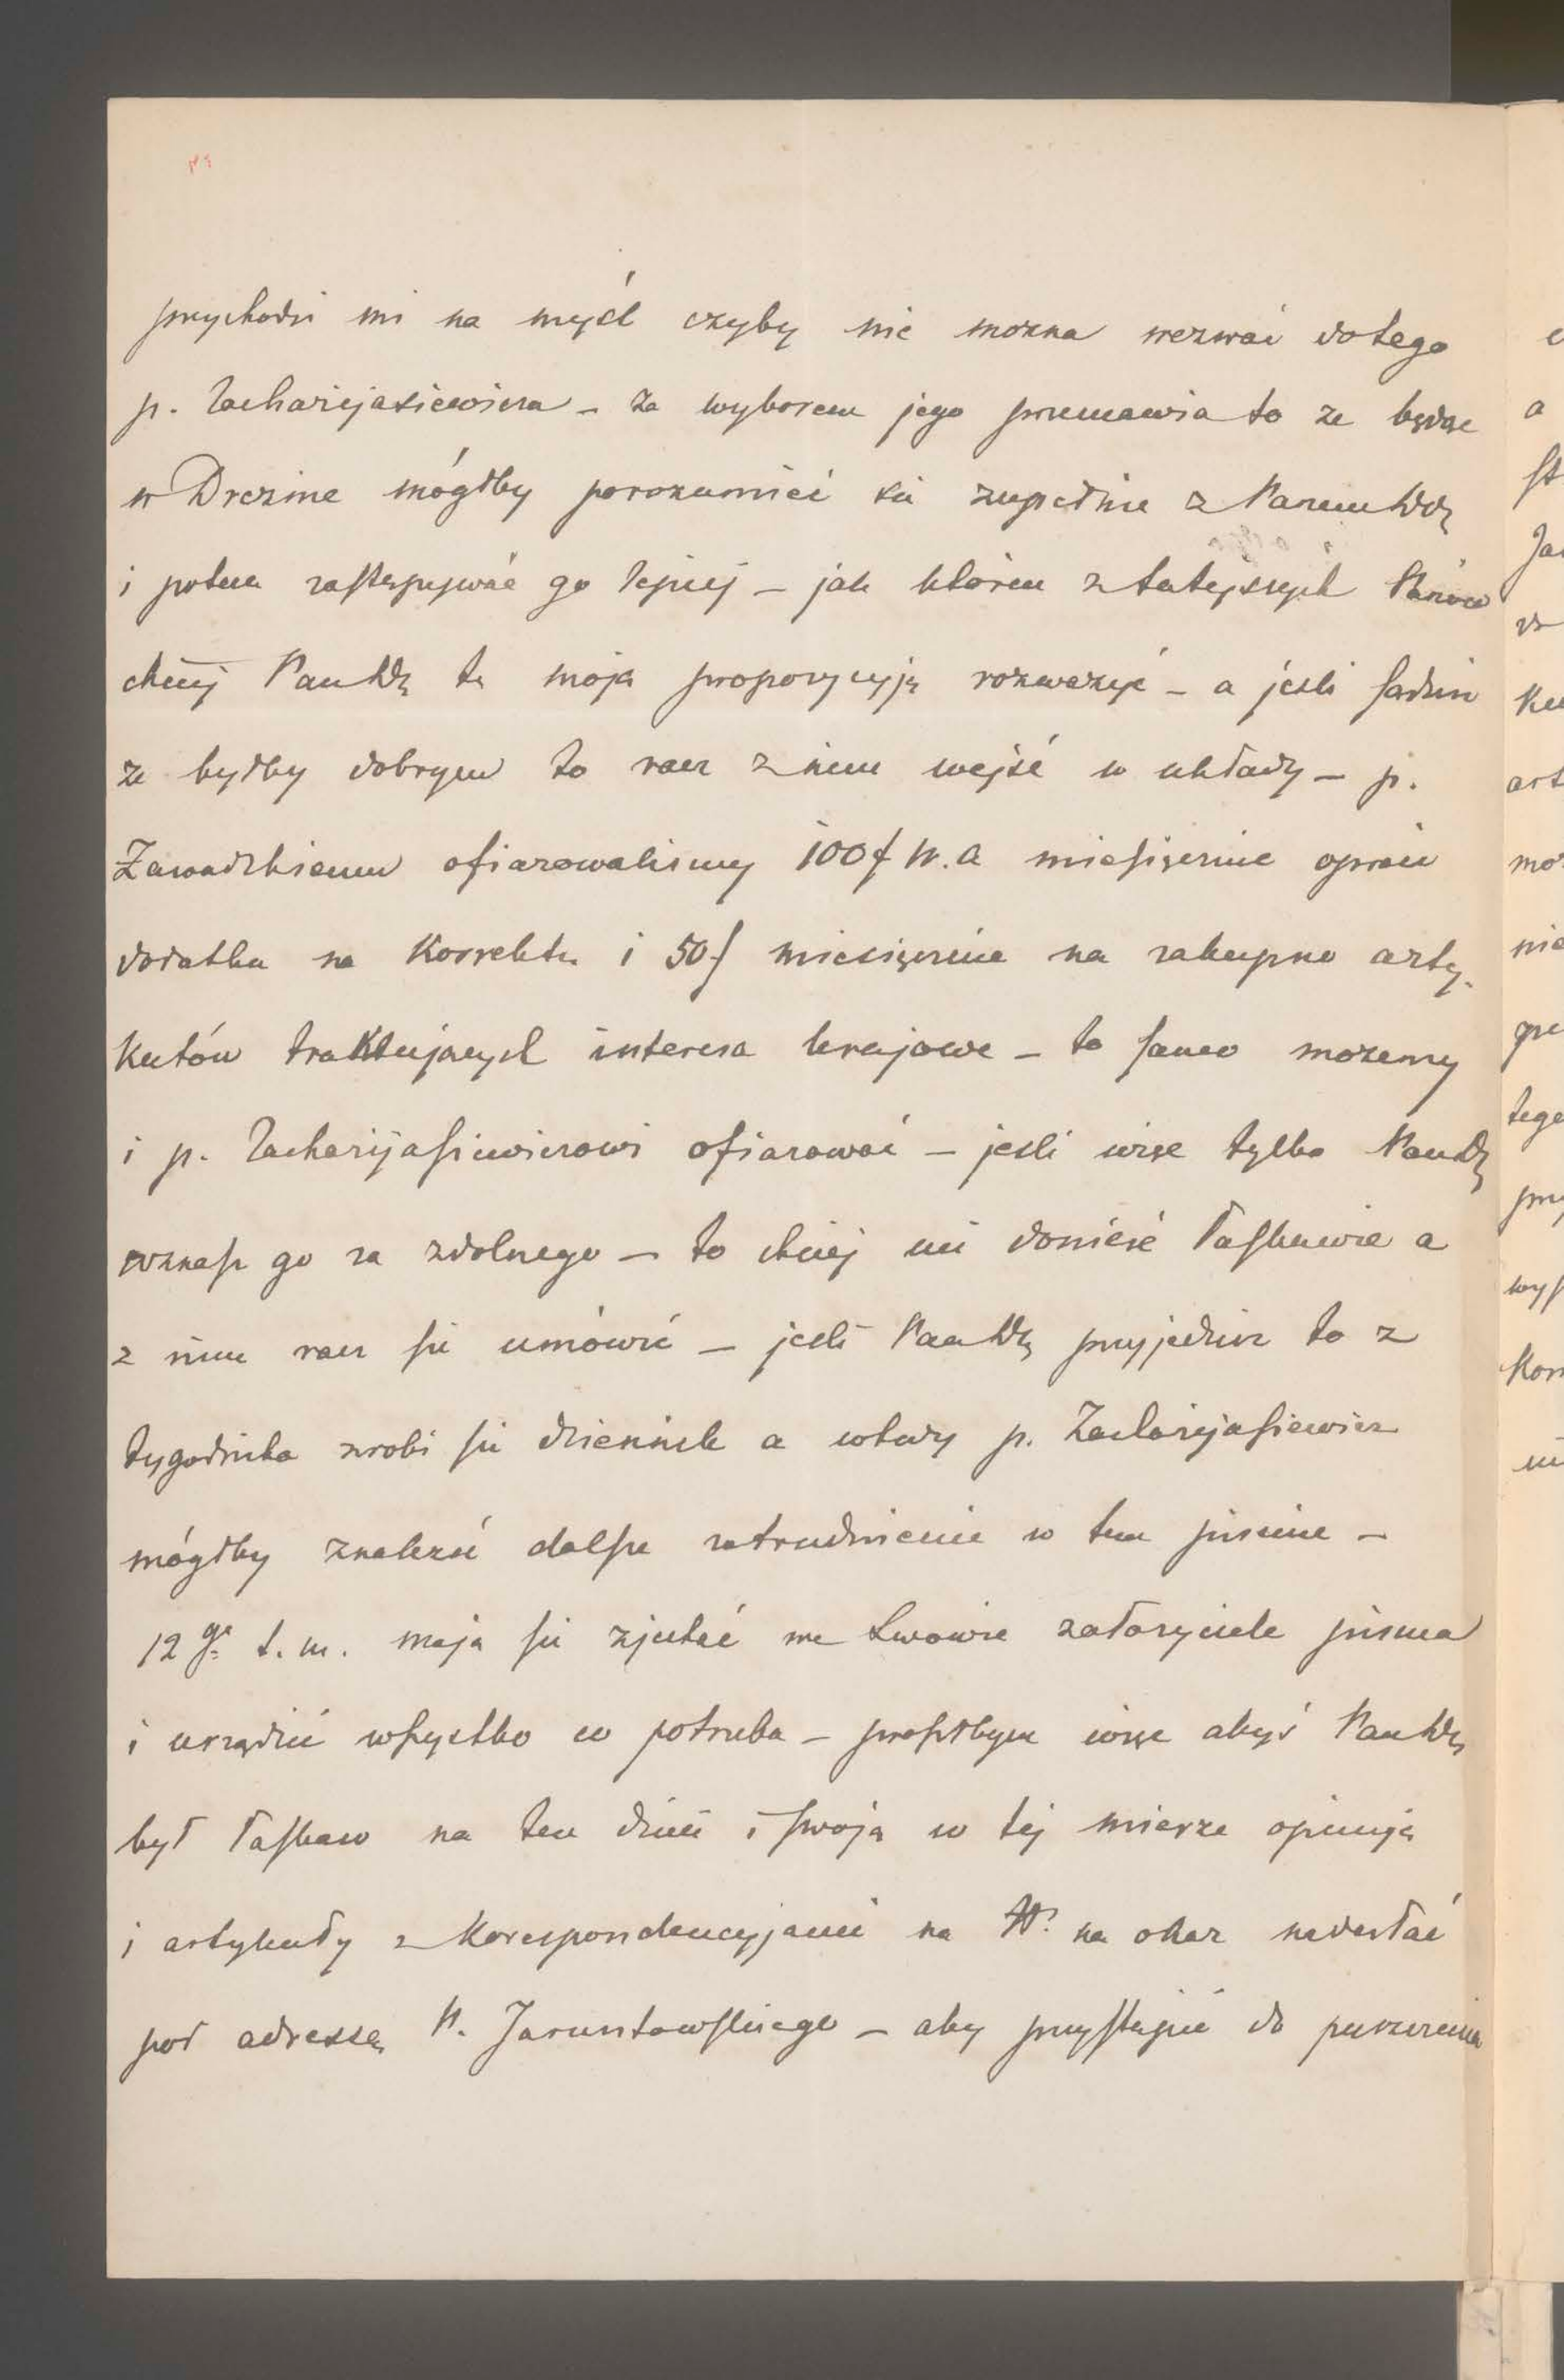 przychodzi mi na myśl czyby nie można wezwać do tego
p. Zacharijasiewicza – za wyborem jego przemawia to ze będąc
w Dreznie mógłby porozumieć się zupełnie z Panem Wdz
i potem zastępywać go lepiej – jak którem z tutejszych Panów
chciej Pan Wdz tę moją proporycyją rozważyć – a jeśli sądzisz
ze byłby dobrym to racz z niem wejść w układy – p.
Zawadzkiemu ofiarowalismy 100 f w. a miesięcznie oprócz
dodatku na Korrektę i 50 f miesięcznie na zakupno arty-
kułów traktujących interesa krajowe – to samo mozemy
i p. Zacharijasiewiczowi ofiarować – jesli więc tylko Pan Wdz
uznasz go za zdolnego – to chciej mi donieść łaskawie a
z nim racz się umówić – jesli Pan Wdz przyjedzisz to z
tygodnika zrobi się dziennik a wtedy p. Zacharijasiewicz
mógłby znalezść dalsze zatrudnienie w tem pismie –
12go t. m. mają się zjechać we Lwowie założyciele pisma
i urządzić wszystko co potrzeba – prosiłbym więc abyś Pan Wdz
był łaskaw na ten dzień i swoją w tej mierze opiniją
i artykuły z Korespondencyjami na No na okaz nadesłać
pod adressą P. Jaruntowskiego – aby przystąpić do puszczenia